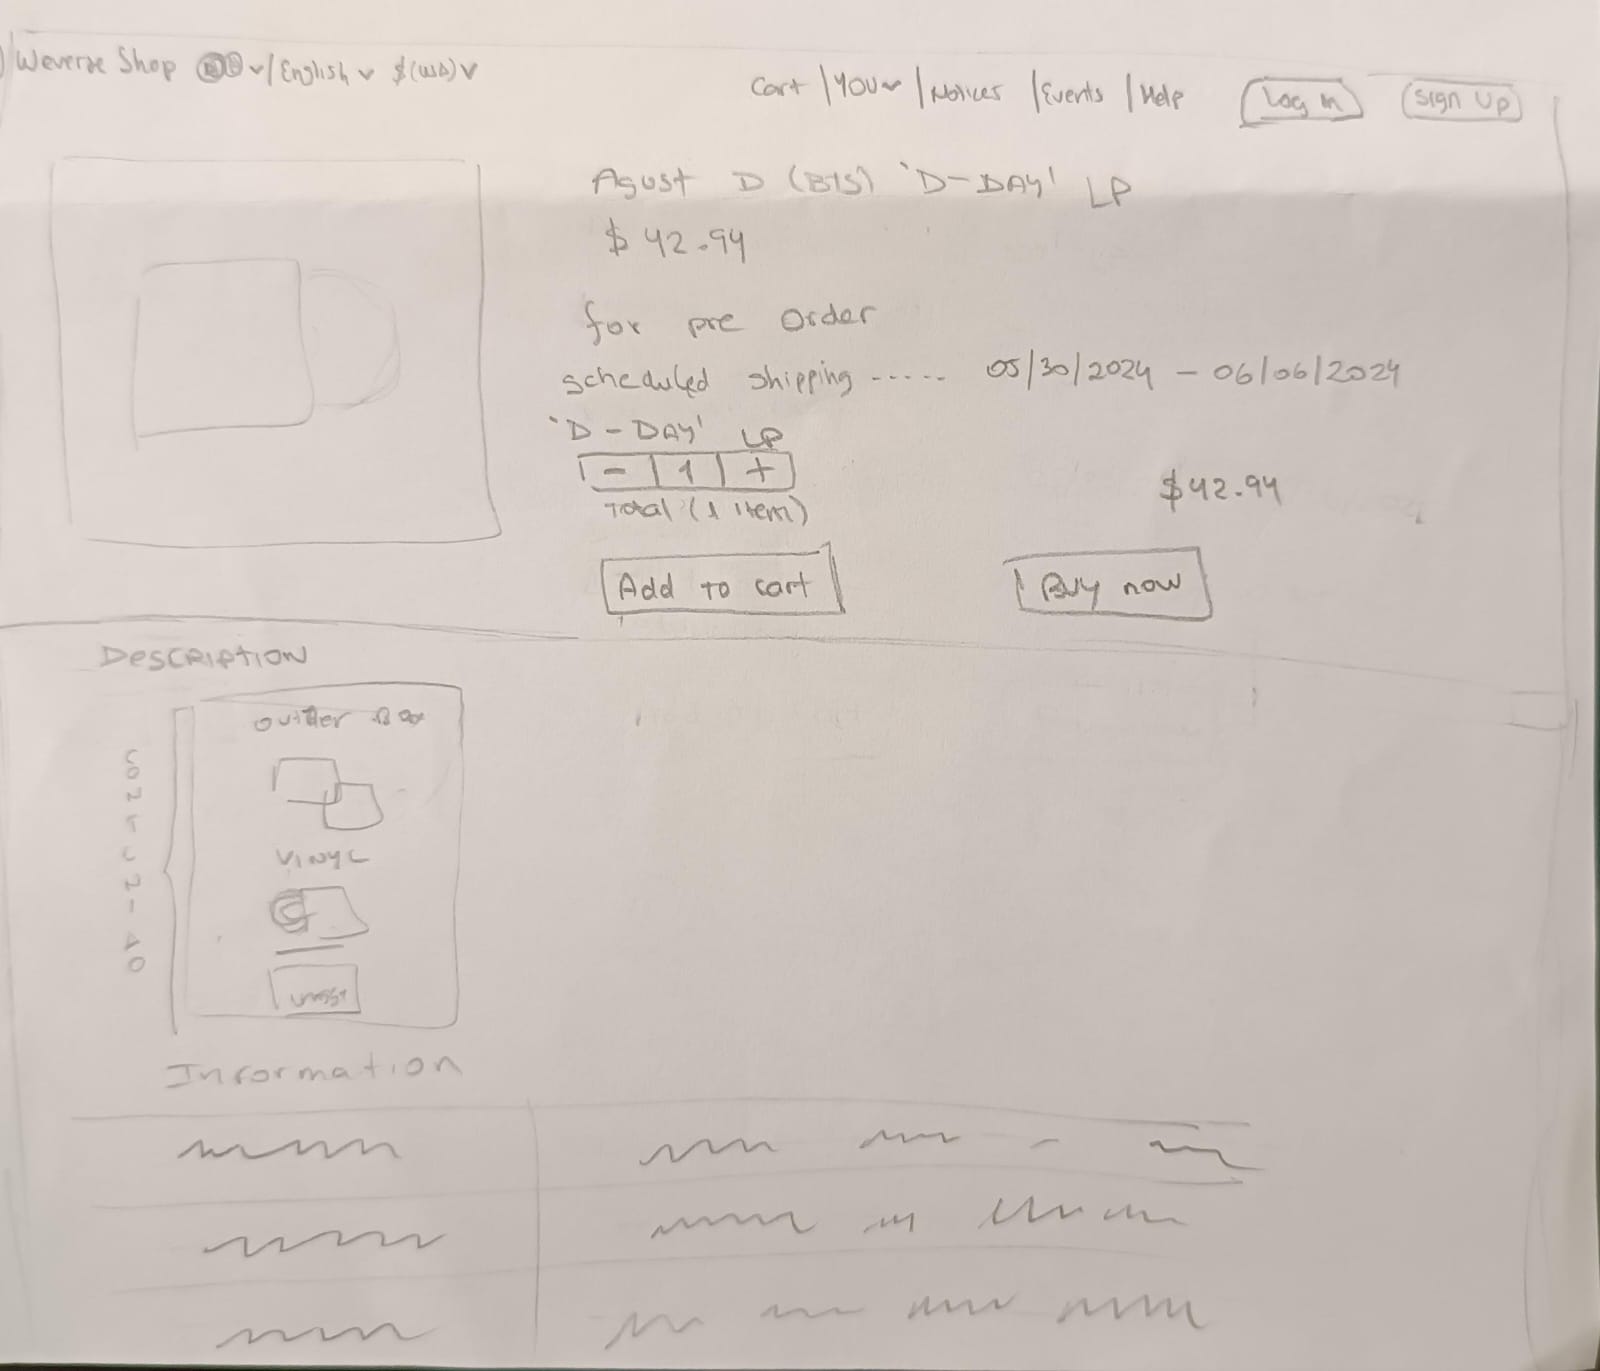 Weverse Shop v/English v $(USD) v
Cart | You v | Notices | Events | Help
Log In
Sign Up
Agust D (BTS) 'D-DAY' LP
$ 42.94
for pre order
scheduled shipping ----- 05/30/2024 - 06/06/2024
'D-DAY' LP
- | 1 | +
$42.94
Total (1 item)
Add to cart
Buy now
DESCRIPTION
Box
VINYL
Information